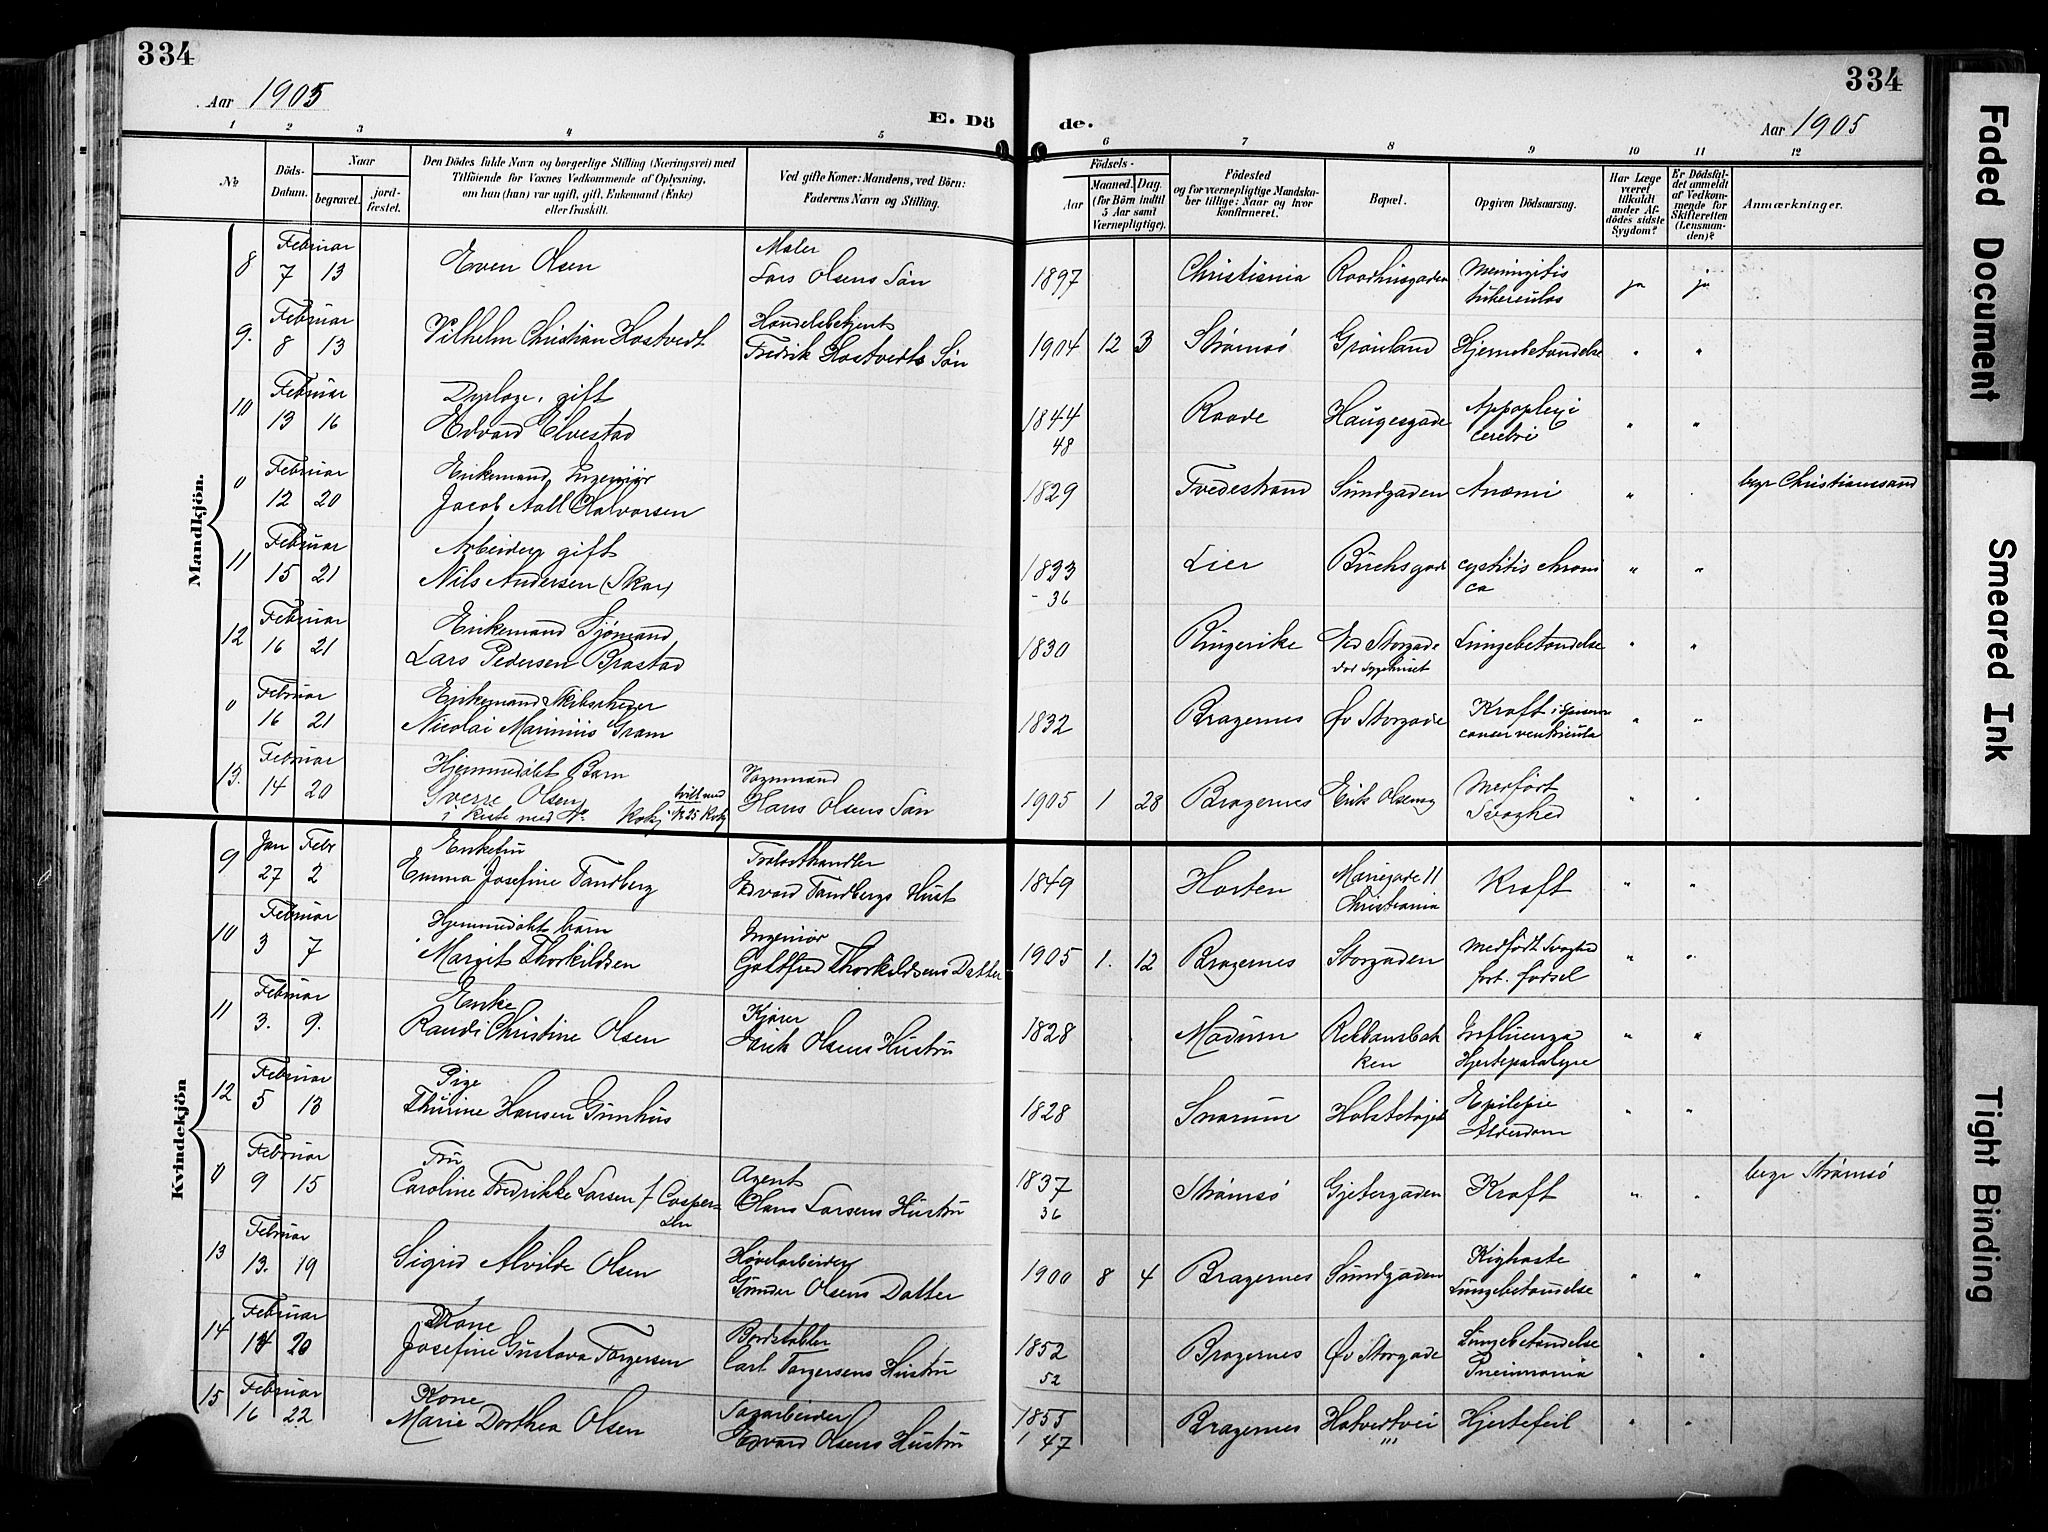 334
Aar 1905
E. Dö
1 2 3 4 5
№
Döds-
Datum.
Naar
begravet.
jord-
fæstet.
Den Dödes fulde Navn og borgerlige Stilling (Næringsvei) med
Tilföiende for Voxnes Vedkommende af Oplysning,
om han (hun) var ugift, gift, Enkemand (Enke)
eller fraskilt.
Ved gifte Koner: Mandens, ved Börn:
Faderens Navn og Stilling.
Mandkjön.
8
Februar
7 13
Even Olsen
Maler
Lars Olsens Søn
9.
Februar
8 13
Vilhelm Christian Hostvedt
Handelsbetjent
Fredrik Hostvedts Søn
10
Februar
13 16
gift
Edvard Elvestad
0
Februar
12 20
Enkemand, Ingeniør
Jacob Aall Halvorsen
11
Februar
15 21
Arbeider, gift
Nils Andersen (Skar)
12
Februar
16 21
Enkemand Sjømand
Lars Pedersen Brastad
0
Februar
16 21
Enkemand Skibsreder
Nicolai Marinius Gram
13.
Februar
14 20
Hjemmedøbt Barn
Sverre Olsen
i kiste med
Vognmand
Hans Olsens Søn
Kvindekjön
9
Jan Febr
27 2
Enkefru
Emma Josefine Tandberg
Trælasthandler
Edvard Tandbergs Hust
10
Februar
3 7
Hjemmedøbt barn
Margit Thorkildsen
Ingeniør
Gotfred Thorkildsens Datter
11
Februar
3. 9.
Enke
Randi Christine Olsen
Kjører
Erik Olsens Hustru
12
Februar
5 13
Pige
Thurine Hansen Gunhus
0
Februar
9 15
Fru
Caroline Fredrikke Larsen f Casper-
sen
Agent
Hans Larsens Hustru
13
Februar
13. 19
Sigrid Alvilde Olsen
Høvelarbeider
Gunder Olsens Datter
14
Februar
14 20
Kone
Josefine Gustava Torgersen
Bordstabler
Carl Torgersens Hustru
15
Februar
16 22
Kone
Marie Dorthea Olsen
Sagarbeider
Edvard Olsens Hustru
334
de.
Aar 1905
6 7 8 9 10 11 12
Födsels-
Aar
Maaned. Dag.
(for Börn indtil
5 Aar samt
Værnepligtige).
Födested
og for værnepligtige Mandska-
ber tillige: Naar og hvor
konfirmeret.
Bopæl.
Opgiven Dödsaarsag.
Har Læge
været
tilkaldt
under Af-
dödes sidste
Sygdom?
Er Dödsfal-
det anmeldt
af Vedkom-
mende for
Skifteretten
(Lensman-
den)?
Anmærkninger.
1897 Christiania Raadhusgaden Meningitis
tuberculos ja ja
1904 12 3 Strømsø Grønland Hjernebetændelse " "
1844
48 Raade Haugesgade Appoplexi
cerebri " "
1829 Tvedestrand Sundgaden Anæmi " . begr Christianssand
1833
-36 Lier Buchsgade cystitis chroni
ca " "
1830 Ringerike Ned Storgade
død Sygehuset Lungebetændelse " "
1832 Bragernes Øv Storgade Kræft i
cancer ventricula " "
1905 1 28 Bragernes Erik Olsensg Medført
Svaghed " "
1849 Horten Mariegade 11
Christiania Kræft " "
1905 1. 12 Bragernes Storgaden Medført Svaghed
fort. fødsel " "
1828 Modum Rebbansbak
ken Influenza
Hjerteparalyse " "
1828 Snarum Holstetøjet Epilepsie
Alderdom " "
1837
36 Strømsø Gjetergaden Kræft " " begr Strømsø
1900 8 4 Bragernes Sundgaden Kighoste
Lungebetændelse " "
1852
52 Bragernes Øv Storgade Lungebetændelse
Pneumonia " "
1855
1 47 Bragernes Hotvedtvei Hjertefeil " "
Faded Document
Smeared Ink
Tight Binding